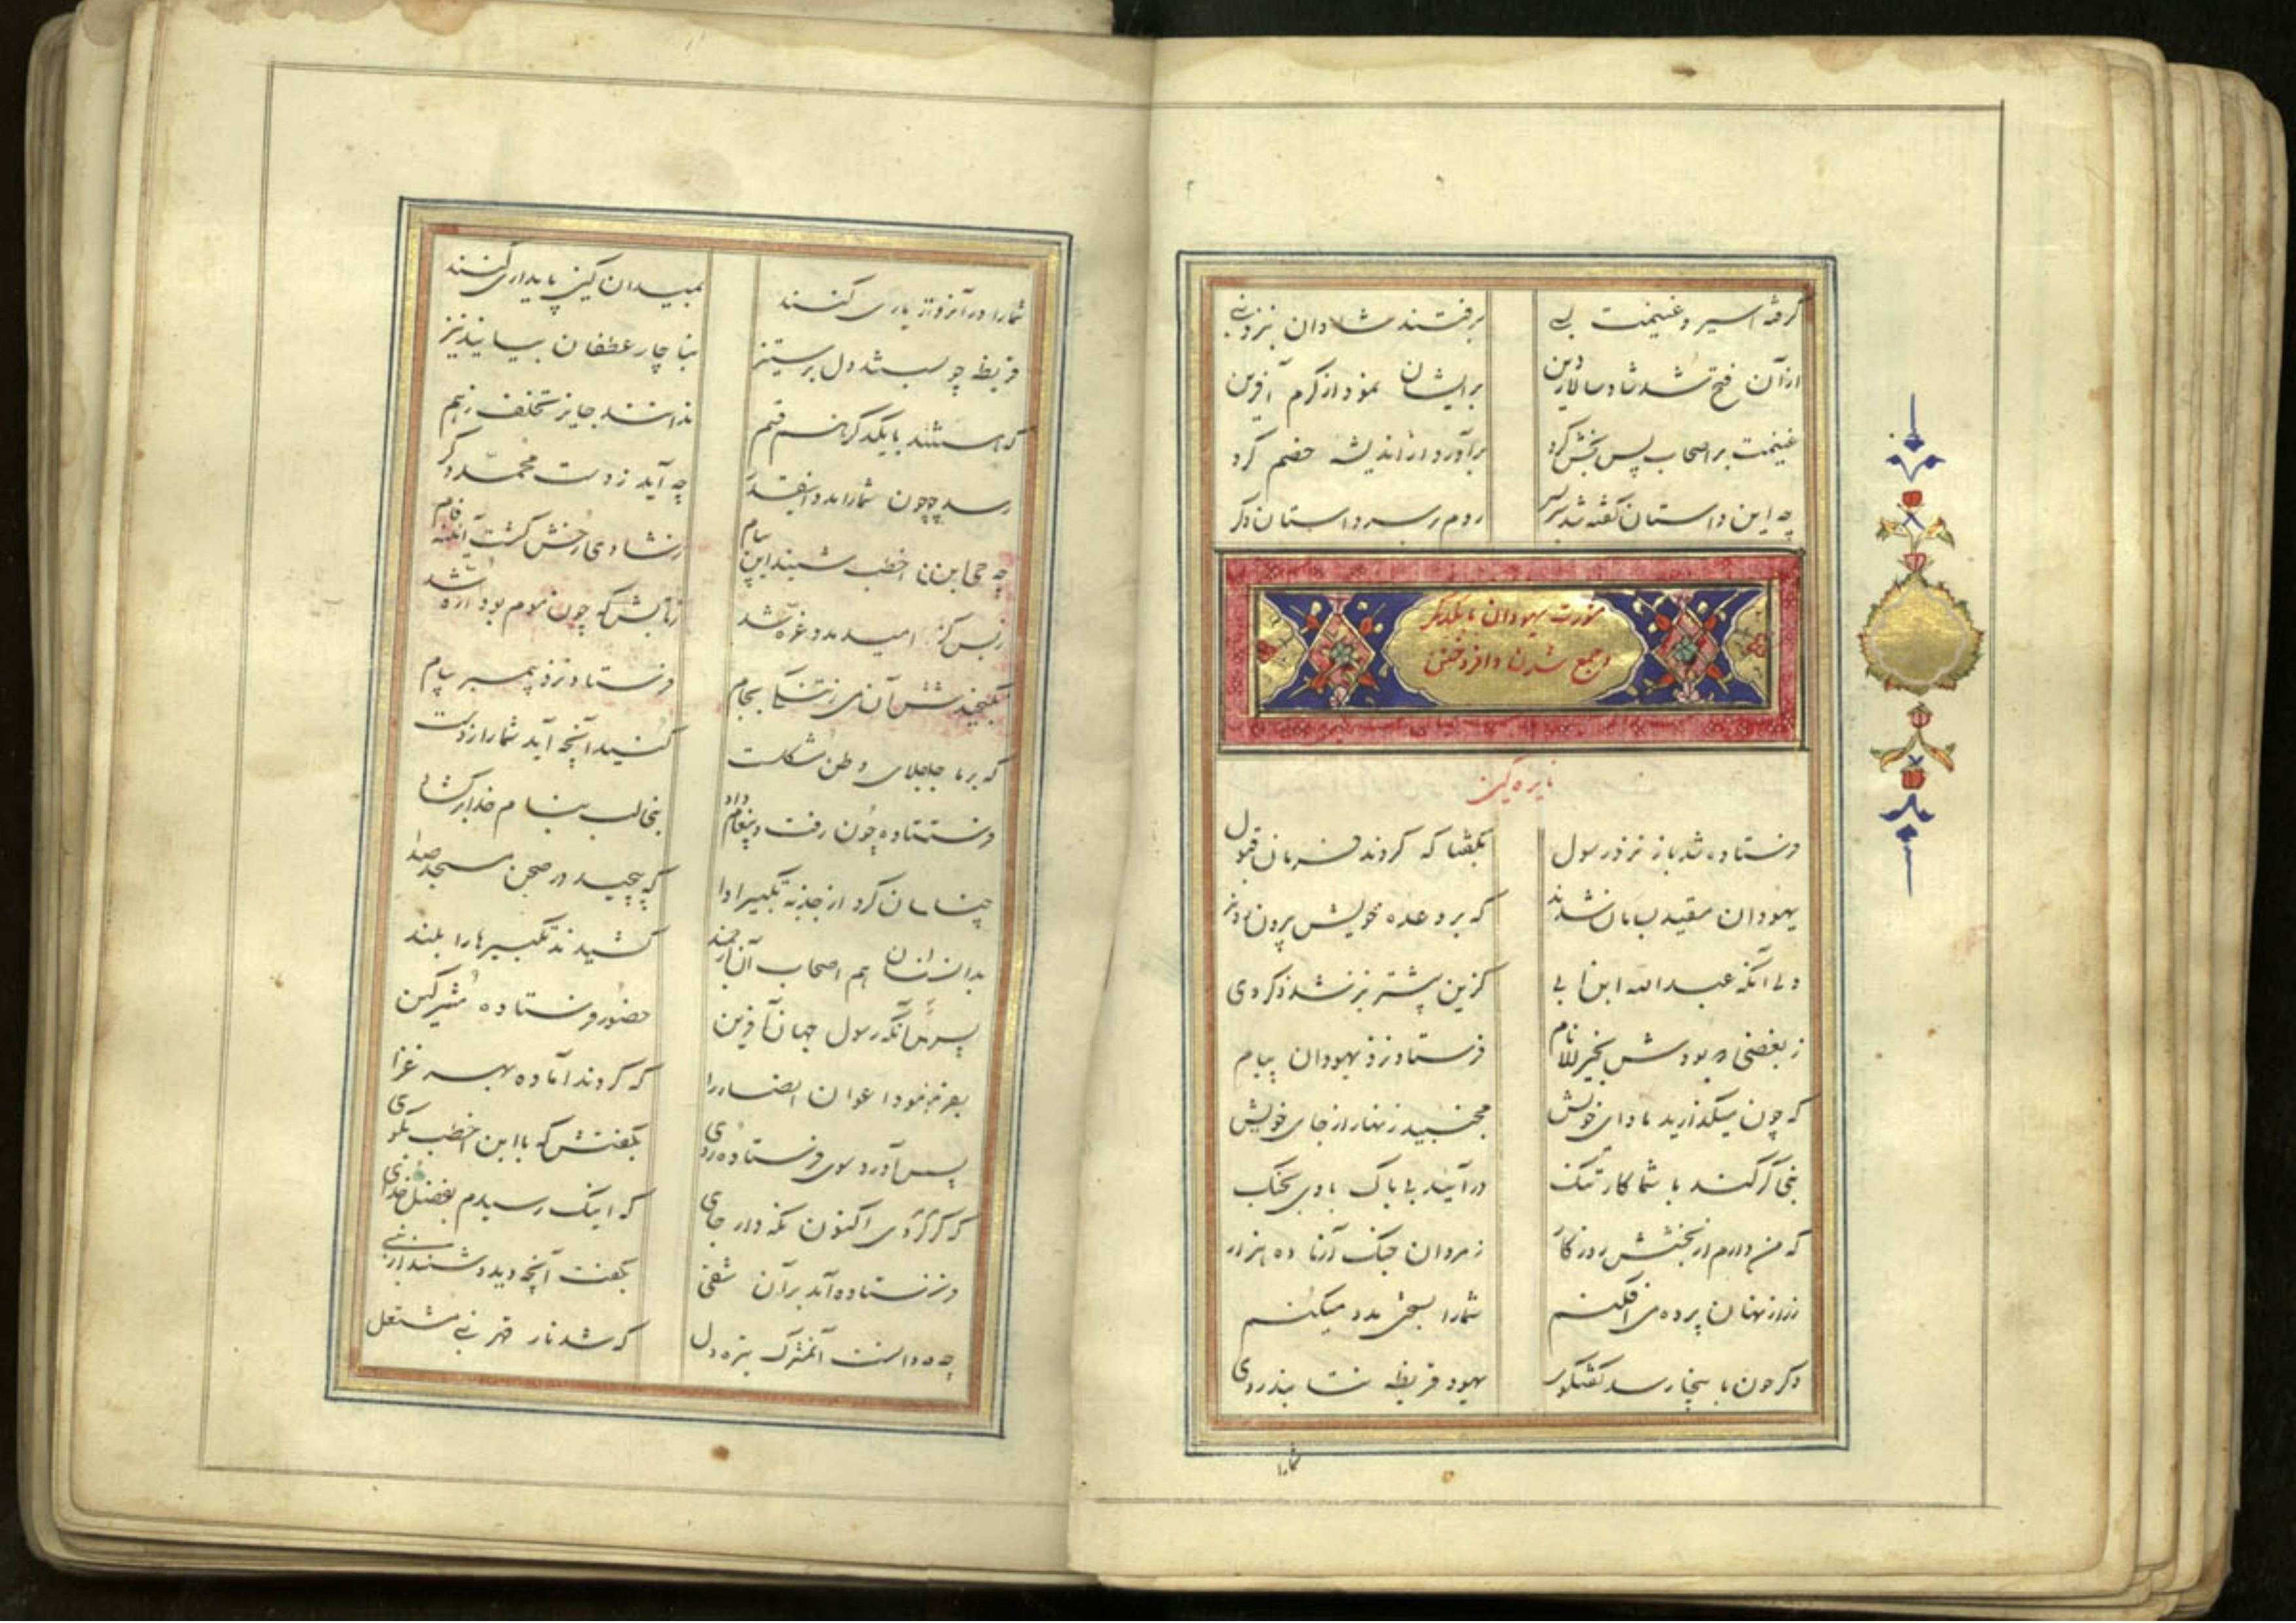 گرفته اسیر و غنیمت بسی برفتند شادان بنزد نبی
ازآن فتح شد شاد سالار دین برایشان نمود از کرم آفرین
غنیمت بر اصحاب پس بخش کرد برآورد از اندیشه خصم کرد
چه این داستان گفته شد سربسر روم بر سر داستان دکر
مشورت یهودان با یکدیگر
و جمع شدن و افروختن
نایره کین
فرستاده شد باز نزد رسول بگفتا که کردند فرمان قبول
یهودان مقید بسامان شدند که بر وعده خویش بیرون روند
ولی آنکه عبدالله ابن ابی کزین پیشتر نیز شد ذکر وی
ز بغضی که بودش بخیرالانام فرستاد نزد یهودان پیام
که چون میگذارید ماوای خویش مجنبید زنهار از جای خویش
نبی گر کند با شما کار تنک درآئید بی باک با وی بجنک
که من دارم از بخشش روزگار ز مردان جنگ آزما ده هزار
ز راز نهان پرده می افکنم شما را بسختی مدد میکنم
دکر چون باینجا رسد گفتگوی یهود قریظه نتابند روی
شمارا
شما را در آنروز یاری کنند بمیدان کین پایداری کنند
قریظ چو بستند دل بر ستیز بناچار غطفان بیایند نیز
که هستند با یکدکر هم قسم ندانند جایز تخلف ز هم
رسد چون شما را مدد اینقدر چه آید ز دست محمد دکر
چه حی ابن اخطب شنید این پیام ز شادی رخش گشت آئینه فام
ز بس کز امید مدد غره شد
نگنجید شش آن می ز تنگی بجام فرستاد نزد پیمبر پیام
که بر ما جلای وطن مشکلست کنید آنچه آید شما را ز دست
فرستاده چون رفت و پیغام داد
چنان سان کرد از جذبه تکبیر ادا که پیچید در صحن مسجد صدا
بدانسان هم اصحاب آن ارجمند کشیدند تکبیرها را بلند
پس آنگه رسول جهان آفرین حضور فرستاده مشرکین
بفرمود اعوان انصار را که کردند آماده بهر غزا
پس آورد سوی فرستاده روی بگفتش که با ابن اخطب بگوی
که گر مردی اکنون نگه دار جای که اینک رسیدم بفضل خدای
فرستاده آمد بر آن شقی بگفت آنچه دید و شنید از نبی
چه دانست آنمشرک تیره دل که شد نار قهر نبی مشتعل